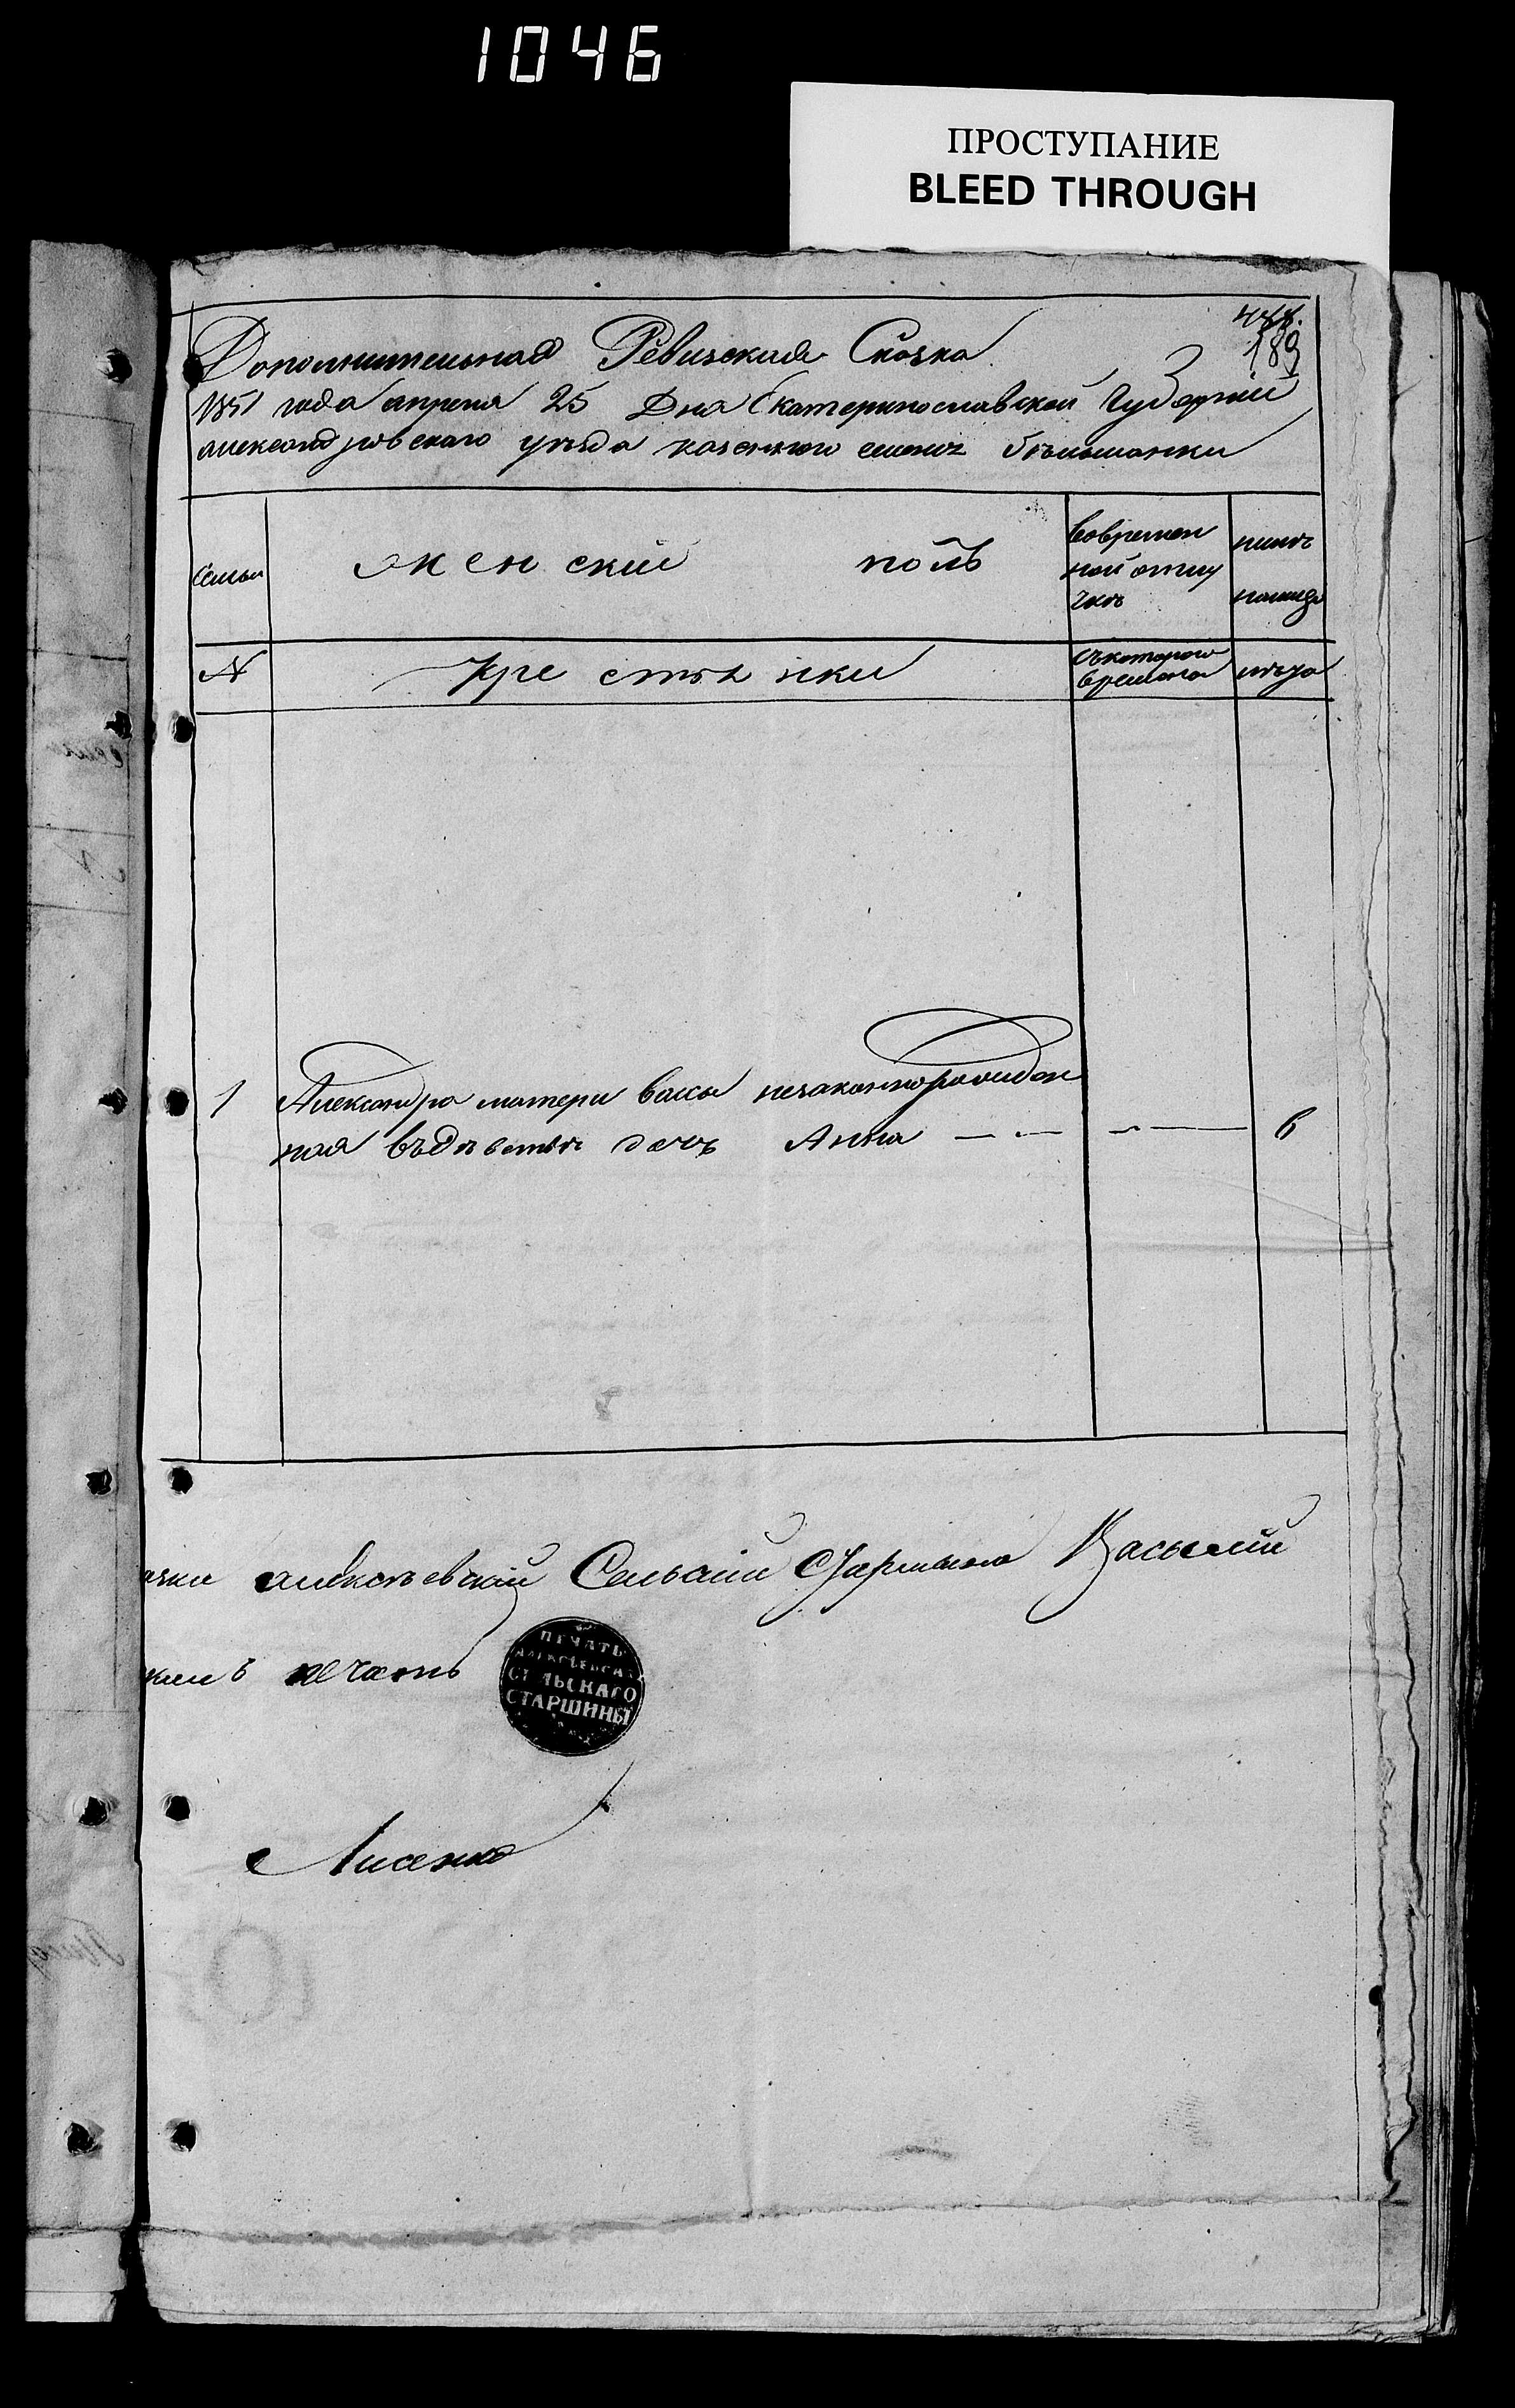 1046
ПРОСТУПАНИЕ
BLEED THROUGH
189
Дополнительная Ревизская Сказка
1851 года апреля 25 Дня Екатеринославской Губернии
александровскаго уезда казенного селения белманки
семьи
женский полъ
вовремен
ной отлу
чкѣ
нынѣ
налицо
N
Крестьянки
съкотораго
времени
лѣта
1 Александра матери васы незаконнорожден
ная въдѣвствѣ дочь Анна — — — — 6
алексѣевский Сельский Старшина Василий
печать
ПЕЧАТЬ
АЛЕКСѢЕВСКА
СЕЛЬСКАГО
СТАРШИНЫ
Лисенко